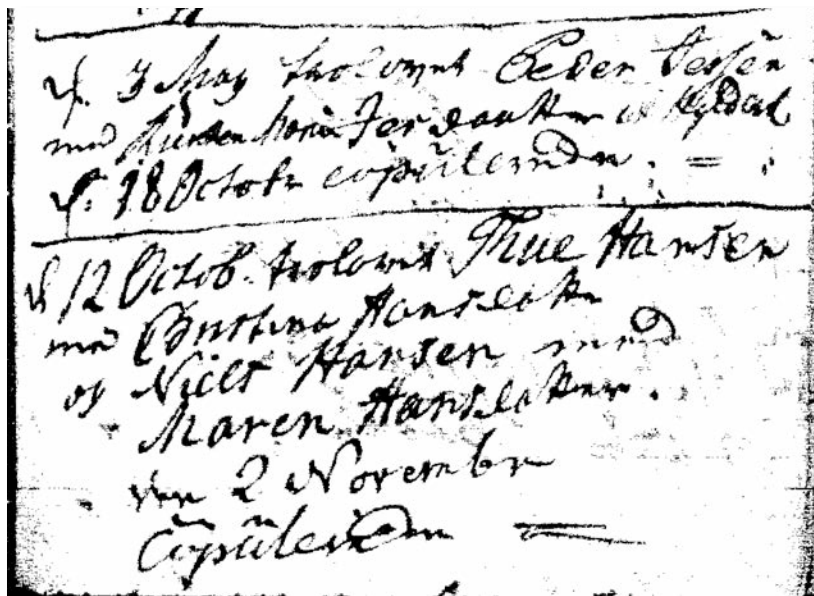 d. 3 May trolovet Peder Jessen
med Kirsten Marie Jerdaatter
d. 18 Octobr copulerede. =
d 12 Octob. trolovet Thue Hansen
med Christina Hansdatr
og Niels Hansen med
Maren Hansdatter.
den 2 Novembr
Copulerede =